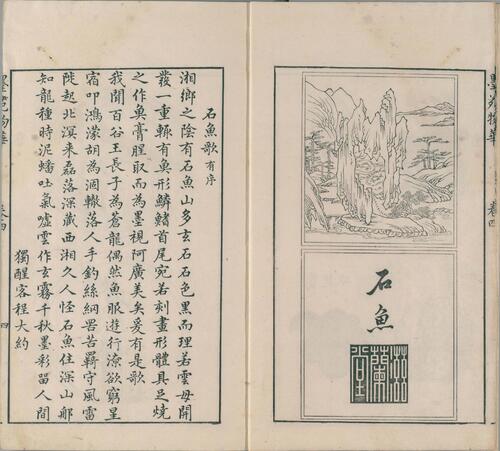 墨苑物華 卷四
石魚
滋蘭堂
石魚歌有序
湘鄉之陰有石魚山多玄石石色黑而理若雲母開
發一重輒有魚形鱗鰭首尾宛若刻畫形體具足燒
之作魚膏腥取而為墨視阿廣美矣爰有是歌
我聞百谷王長子為蒼龍偶然魚服遊行潦欲窮星
宿叩鴻濛胡為涸轍落人手釣絲網罟苦羈守風雷
陡起北溟来磊落深藏西湘久人怪石魚住深山那
知龍種時泥蟠吐氣噓雲作玄霧千秋墨彩留人間
獨醒客程大約
墨苑物華 卷四 四